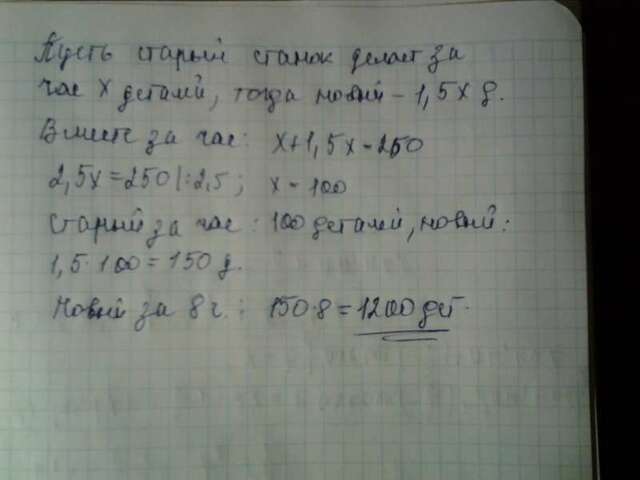 Пусть старый станок делает за
час x деталей, тогда новый - 1,5x д.
Вместе за час: x+1,5x=250
2,5x=250|:2,5; x=100
Старый за час: 100 деталей, новый:
1,5·100=150 д.
Новый за 8 ч.: 150·8=1200 дет.